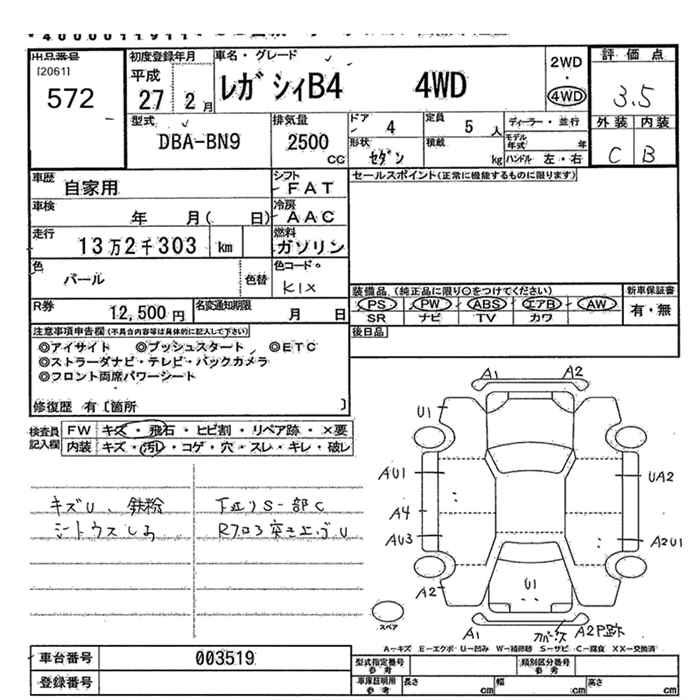 出品番号
[2061]
572
初度登録年月
平成
27 2月
車名・グレード
レガシィB4 4WD
2WD
・
4WD
評価点
3.5
型式
DBA-BN9
排気量
2500
CC
ドア 4
定員 5 人
形状 セダン
積載 kg
ディーラー・並行
モデル年式 年
ハンドル 左・右
外装 内装
C B
車歴
自家用
シフト
FAT
セールスポイント(正常に機能するものに限ります)
車検
年 月( 日)
冷房
AAC
走行
13万2千303 km
燃料
ガソリン
色
パール
色替
色コード
K1X
装備品 (純正品に限り○をつけてください)
PS PW ABS エアB AW
SR ナビ TV カワ
新車保証書
有・無
R券
12,500円
名変通知期限
月 日
後日品
注意事項申告欄(不具合内容等は具体的に記入して下さい)
◎アイサイト ◎プッシュスタート ◎ETC
◎ストラーダナビ・テレビ・バックカメラ
◎フロント両席パワーシート
修復歴 有〔箇所 〕
検査員
記入欄
FW キズ・飛石・ヒビ割・リペア跡・×要
内装 キズ・汚れ・コゲ・穴・スレ・キレ・破レ
キズU、鉄粉
シートウスしみ
下廻りS一部C
Rフロア突き上げU
A1 A2
U1
AU1 UA2
A4
AU3 A2U1
A2
U1
A1 A2P跡
スペア
A-キズ E-エクボ U-凹み W-補修跡 S-サビ C-腐食 XX-交換済
車台番号 003519
登録番号
型式指定番号
参考
類別区分番号
参考
車庫証明用
参考
長さ cm 幅 cm 高さ cm